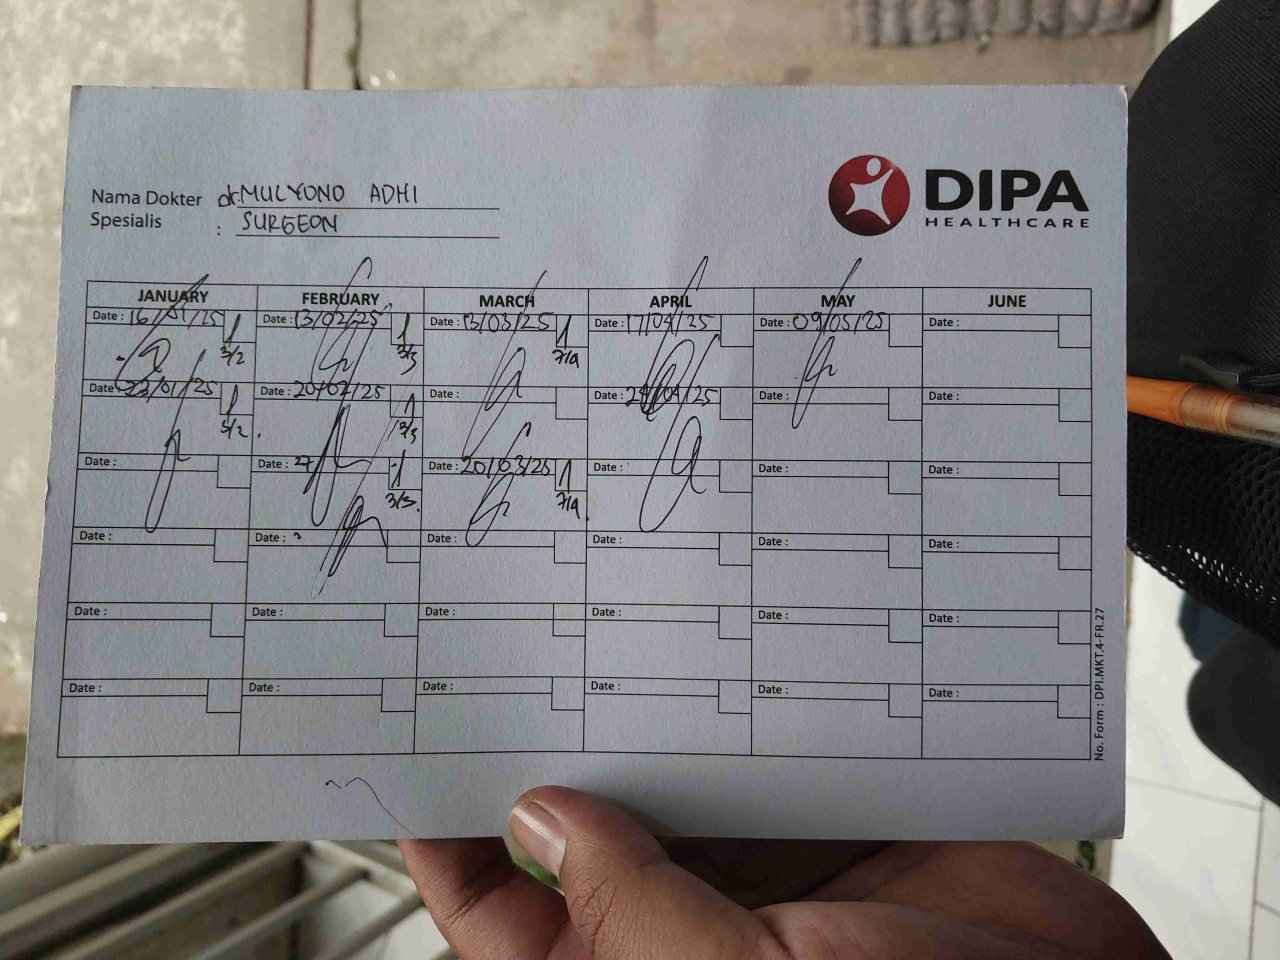 DIPA
HEALTHCARE
Nama Dokter dr. MULYONO ADHI
Spesialis : SURGEON
JANUARY FEBRUARY MARCH APRIL MAY JUNE
Date : 16/01/25 Date : 13/02/25 Date : 13/03/25 Date : 17/04/25 Date : 09/05/25 Date :
3/2 3/3 7/4
Date : 23/01/25 Date : 20/02/25 Date : Date : 24/04/25 Date : Date :
3/2 3/3
Date : Date : 27 Date : 20/03/25 Date : Date : Date :
3/3 7/4
Date : Date : Date : Date : Date : Date :
Date : Date : Date : Date : Date : Date :
Date : Date : Date : Date : Date : Date :
No. Form : DPI.MKT.4-FR.27